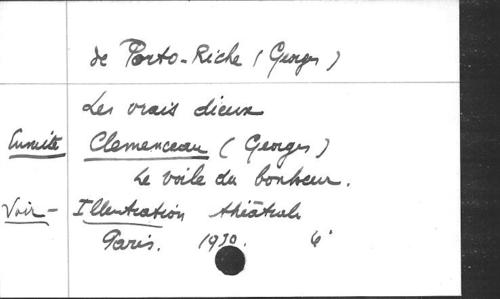 de Porto-Riche (Georges)
Les vrais dieux
Ensuite Clemenceau (Georges)
Le voile du bonheur.
Voir - Illustration théâtrale
Paris. 1930. 4°